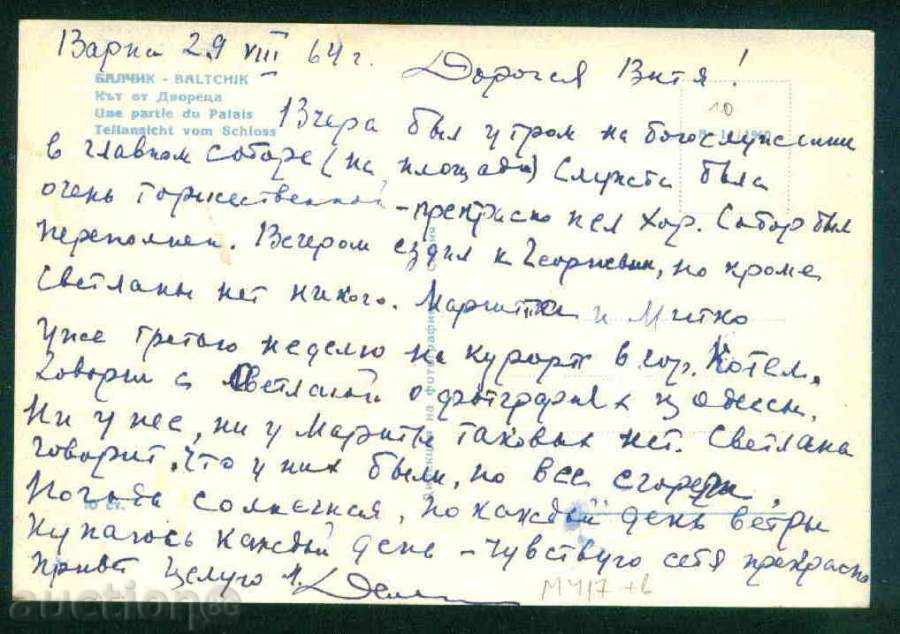 Варна 29 VIII 64 г.
Дорогая Витя!
БАЛЧИК - BALTCHIK
Кът от Двореца
Une partie du Palais
Teilansicht vom Schloss
10
Вчера был утром на богослужении
в главном соборе (на площади) Служба была
очень торжественной - прекрасно пел хор. Собор был
переполнен. Вечером ездил к Георгиевым, но кроме
Светланы нет никого. Маргитка и Митко
уже третью неделю на курорте в гор. Котел.
Говорил с Светланой о фотографиях из Одессы.
Ни у нее, ни у Маргиты таковых нет. Светлана
говорит, что у них были, но все сгорели.
Погода солнечная, но каждый день ветры
Купаюсь каждый день - чувствую себя прекрасно
Привет Целую
10 ст.
М 417 +в
auction2.bg